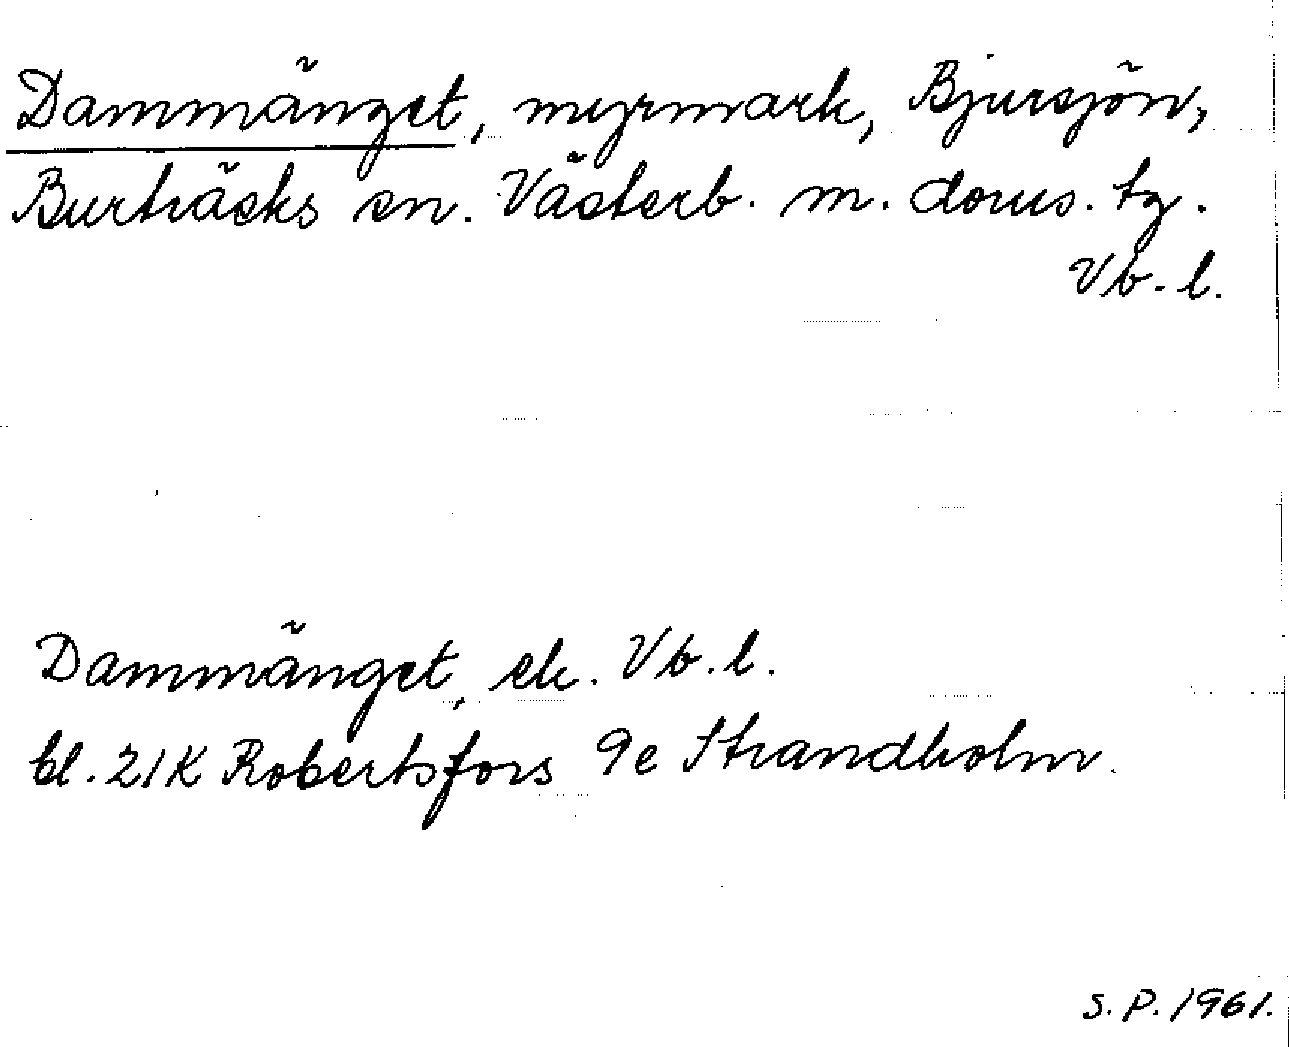 Dammänget, myrmark, Bjursjön,
Burträsks sn. Västerb. m. doms. tg.
Vb. l.
Dammänget, ek. Vb. l.
bl. 21K Robertsfors 9e Strandholm.
S. P. 1961.